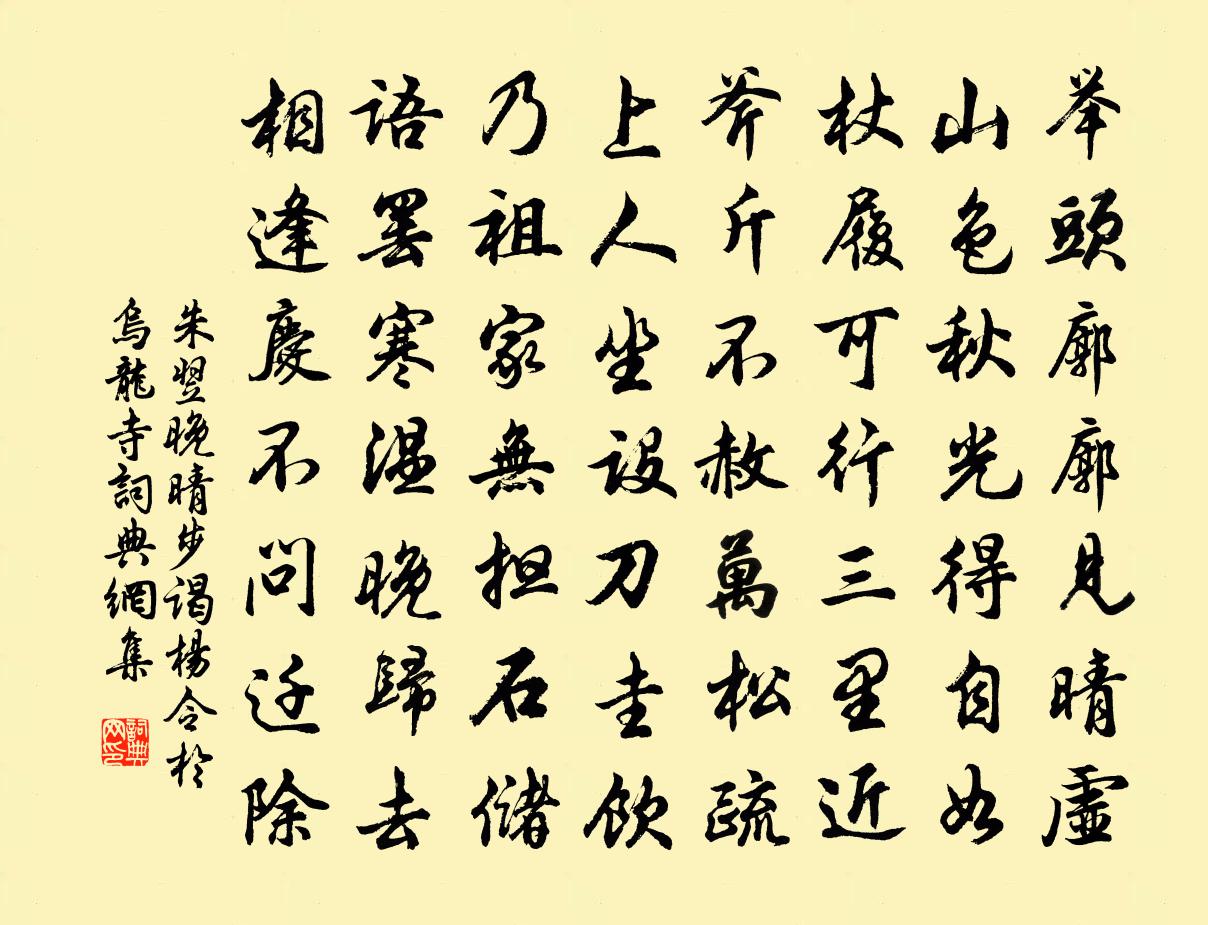 举頭廓廓見晴虛
山色秋光得自如
杖履可行三里近
斧斤不赦萬松疏
上人坐設刀圭飲
乃祖家無担石儲
語罢寒温晚歸去
相逢慶不問迁除
朱翌晚晴步谒楊令於
烏龍寺詞典網集
詞典
网印